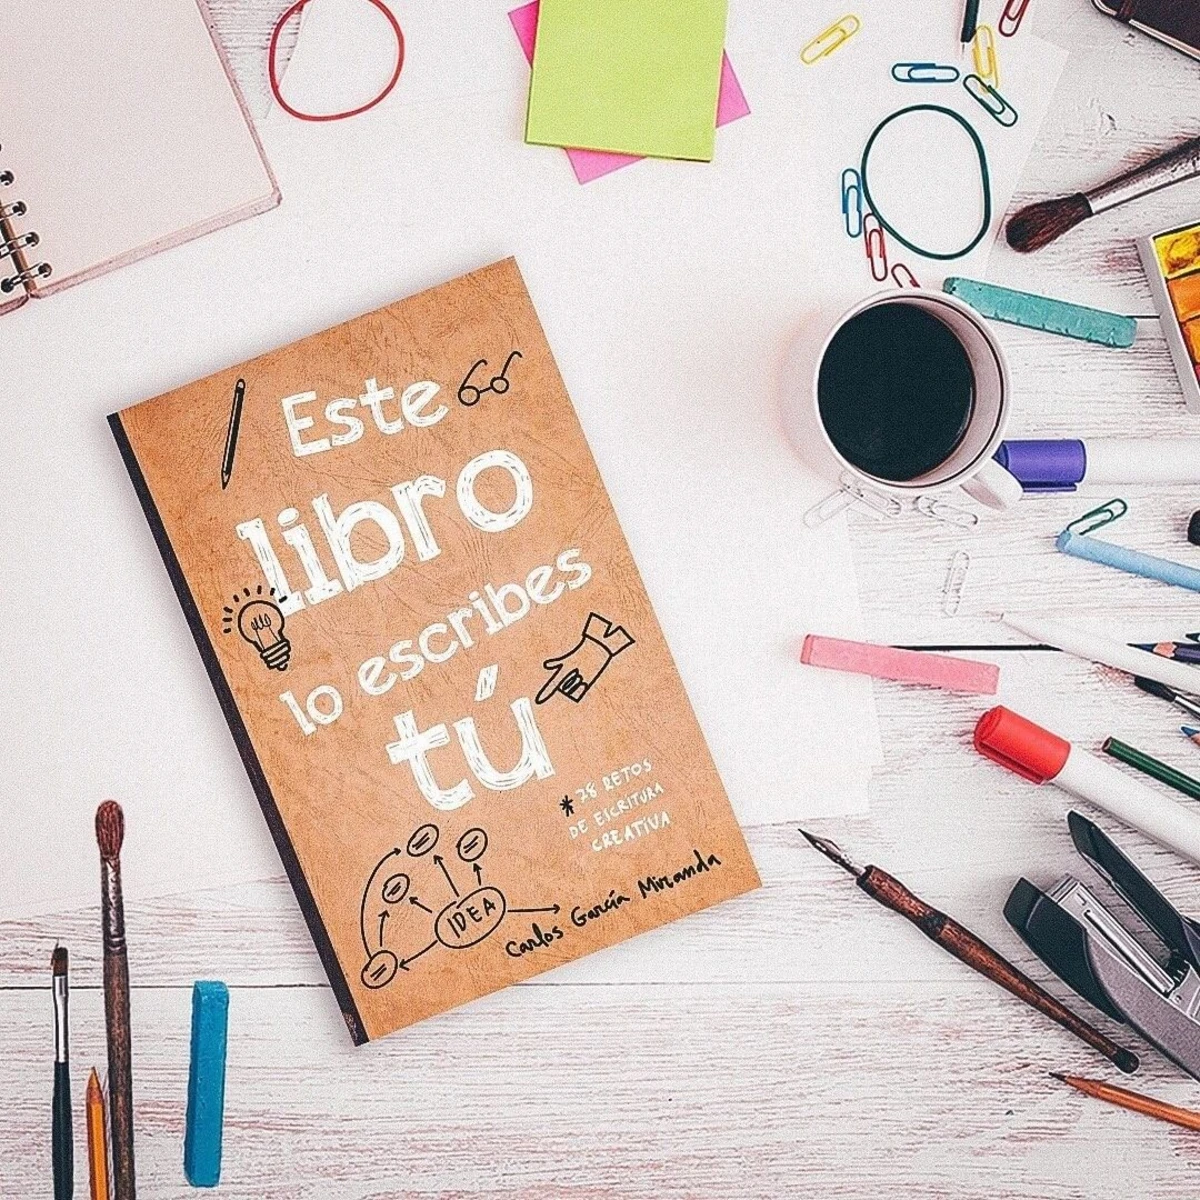 Este
libro
lo escribes
tú
*78 RETOS
DE ESCRITURA
CREATIVA
IDEA
Carlos García Miranda